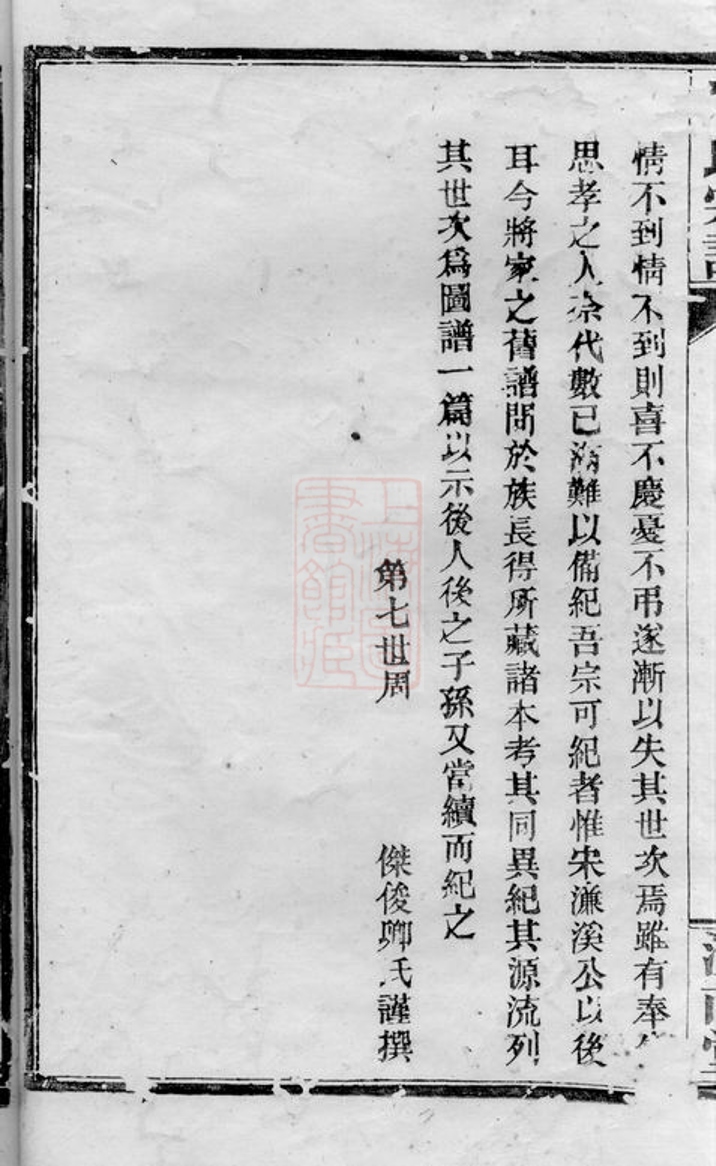 情不到情不到則喜不慶憂不弔遂漸以失其世次焉雖有奉先
思孝之人奈代數已湮難以備紀吾宗可紀者惟宋濂溪公以後
耳今將家之舊譜問於族長得所藏諸本考其同異紀其源流列
其世次為圖譜一篇以示後人後之子孫又當續而紀之
第七世周　傑俊卿氏謹撰
上海圖書館藏